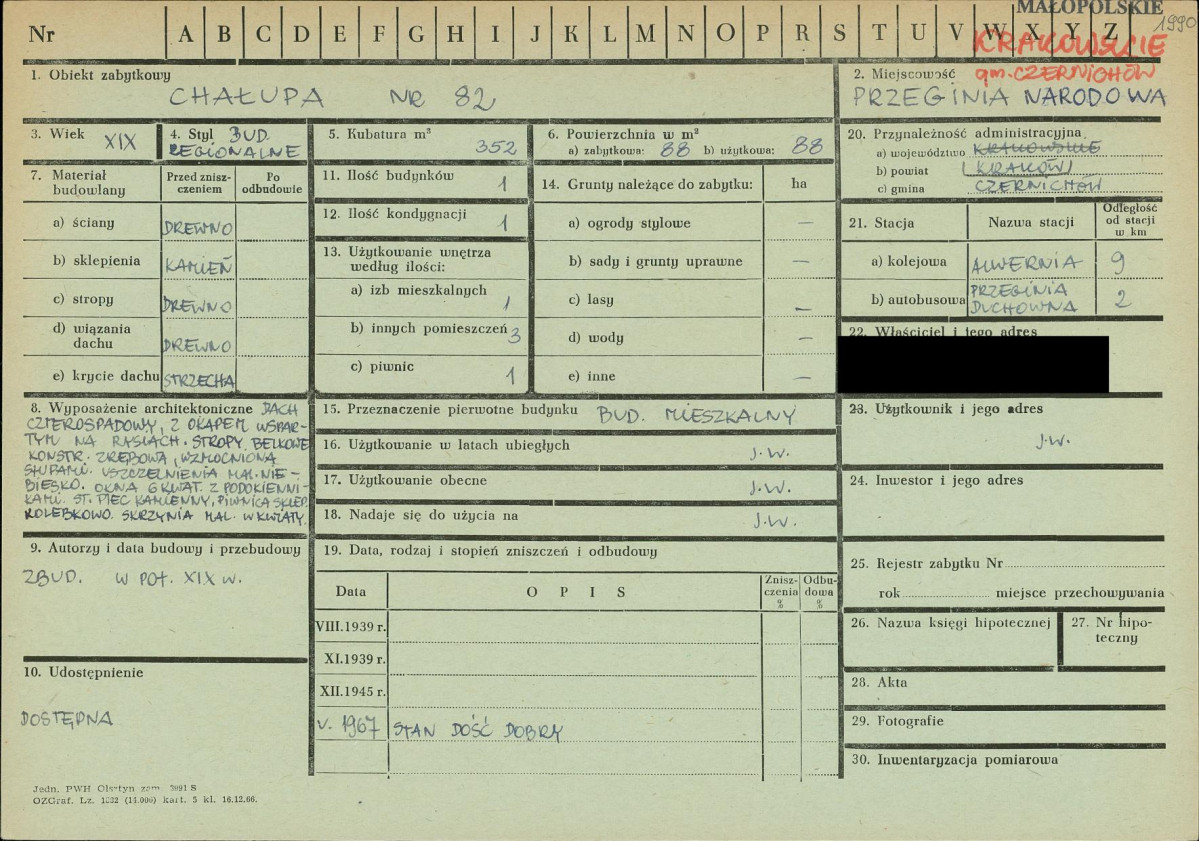 MAŁOPOLSKIE
1990
Nr A B C D E F G H I J K L M N O P R S T U V W X Y Z
KRAKOWSKIE
gm. CZERNICHÓW
1. Obiekt zabytkowy
CHAŁUPA NR 82
2. Miejscowość
PRZEGINIA NARODOWA
3. Wiek XIX
4. Styl BUD.
REGIONALNE
5. Kubatura m³
352
6. Powierzchnia w m²
a) zabytkowa: 88 b) użytkowa: 88
7. Materiał budowlany
Przed znisz-
czeniem
Po
odbudowie
a) ściany DREWNO
b) sklepienia KAMIEŃ
c) stropy DREWNO
d) wiązania
dachu DREWNO
e) krycie dachu STRZECHA
8. Wyposażenie architektoniczne DACH
CZTEROSPADOWY, Z OKAPEM WSPAR-
TYM NA RYSIACH. STROPY BELKOWE
KONSTR. ZRĘBOWA, WZMOCNIONĄ
SŁUPAMI. USZCZELNIENIA MAL. NIE-
BIESKO. OKNA 6 KWAT. Z PODOKIENNI-
KAMI. ST. PIEC KAMIENNY, PIWNICA SKLEP.
KOLEBKOWO. SKRZYNIA MAL. W KWIATY.
9. Autorzy i data budowy i przebudowy
ZBUD. W POŁ. XIX W.
10. Udostępnienie
DOSTĘPNA
11. Ilość budynków
1
12. Ilość kondygnacji
1
13. Użytkowanie wnętrza
według ilości:
a) izb mieszkalnych
1
b) innych pomieszczeń 3
c) piwnic
1
14. Grunty należące do zabytku: ha
a) ogrody stylowe —
b) sady i grunty uprawne —
c) lasy —
d) wody —
e) inne —
15. Przeznaczenie pierwotne budynku BUD. MIESZKALNY
16. Użytkowanie w latach ubiegłych J.W.
17. Użytkowanie obecne J.W.
18. Nadaje się do użycia na J.W.
19. Data, rodzaj i stopień zniszczeń i odbudowy
Data
O P I S
Znisz-
czenia
%
Odbu-
dowa
%
VIII.1939 r.
XI.1939 r.
XII.1945 r.
V. 1967 STAN DOŚĆ DOBRY
20. Przynależność administracyjna
a) województwo KRAKOWSKIE
b) powiat KRAKÓW
c) gmina CZERNICHÓW
21. Stacja
Nazwa stacji
Odległość
od stacji
w km
a) kolejowa ALWERNIA 9
b) autobusowa PRZEGINIA
DUCHOWNA 2
22. Właściciel i jego adres
23. Użytkownik i jego adres
J.W.
24. Inwestor i jego adres
25. Rejestr zabytku Nr
rok miejsce przechowywania
26. Nazwa księgi hipotecznej
27. Nr hipo-
teczny
28. Akta
29. Fotografie
30. Inwentaryzacja pomiarowa
Jedn. PWH Olsztyn zam. 3091 S
OZGraf. Lz. 1332 (14.000) kart. 5 kl. 16.12.66.